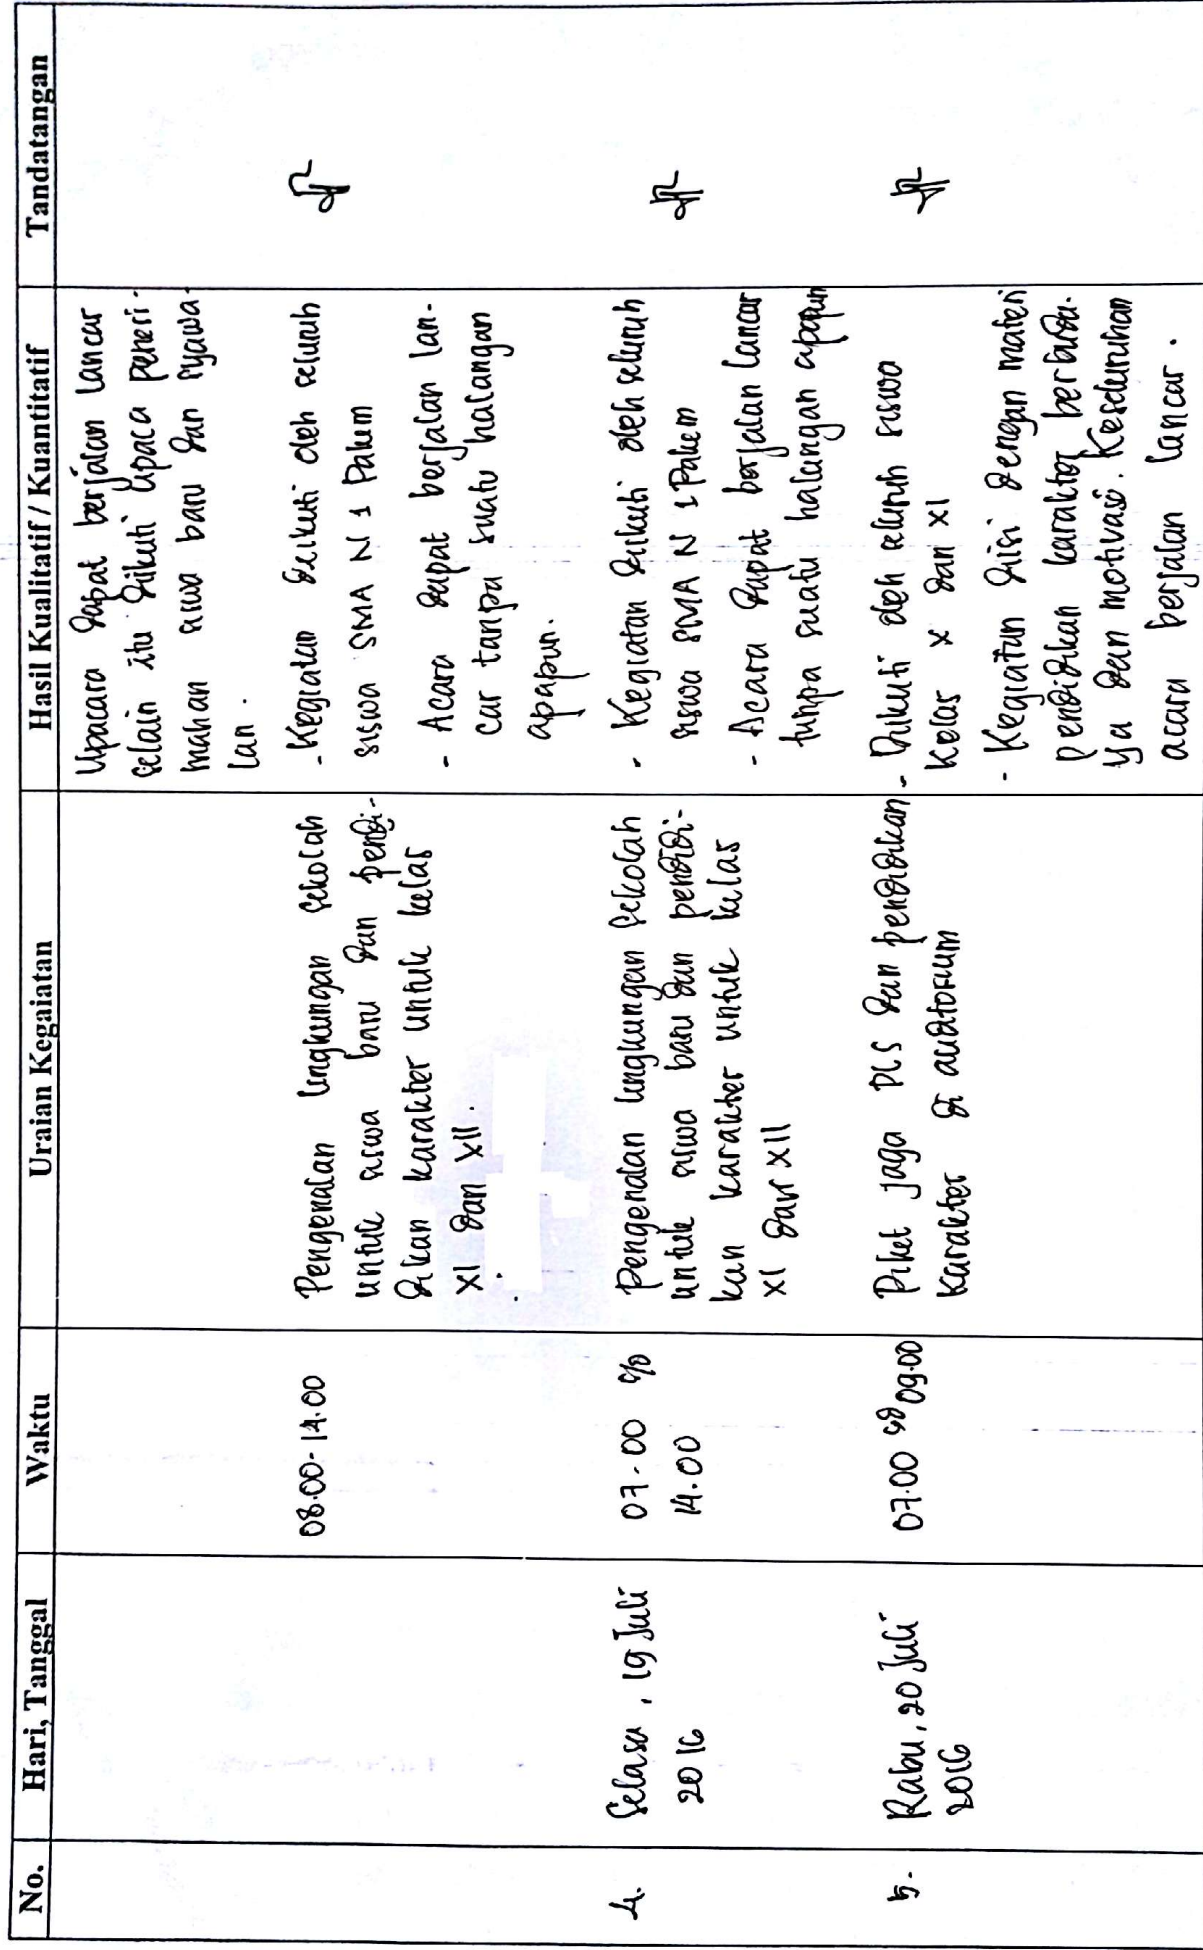 No. Hari, Tanggal Waktu Uraian Kegaiatan Hasil Kualitatif / Kuantitatif Tandatangan
Upacara dapat berjalan lancar
selain itu diikuti upaca peneri-
mahan siswa baru dan syawa-
lan.
08.00-14.00
Pengenalan lingkungan sekolah
untuk siswa baru dan pendi-
dikan karakter untuk kelas
XI dan XII.
- Kegiatan diikuti oleh seluruh
siswa SMA N 1 Pakem
- Acara dapat berjalan lan-
car tanpa suatu halangan
apapun.
4.
Selasa, 19 Juli
2016
07.00 s/d
14.00
Pengenalan lingkungan sekolah
untuk siswa baru dan pendidi-
kan karakter untuk kelas
XI dan XII
- Kegiatan diikuti oleh seluruh
siswa SMA N 1 Pakem
- Acara dapat berjalan lancar
tanpa suatu halangan apapun
5.
Rabu, 20 Juli
2016
07.00 sd 09.00
Piket jaga PLS dan pendidikan
karakter di auditorium
- Diikuti oleh seluruh siswa
Kelas X dan XI
- Kegiatan diisi dengan materi
pendidikan karakter berbuda-
ya dan motivasi. Keseluruhan
acara berjalan lancar.